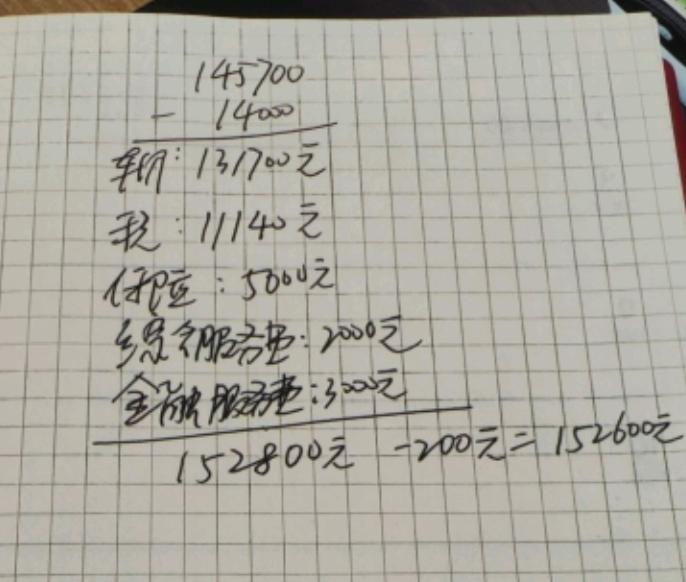 145700
- 14000
车价: 131700元
税: 11140元
保险: 5000元
综合服务费: 2000元
金融服务费: 3000元
152800元 -200元= 152600元